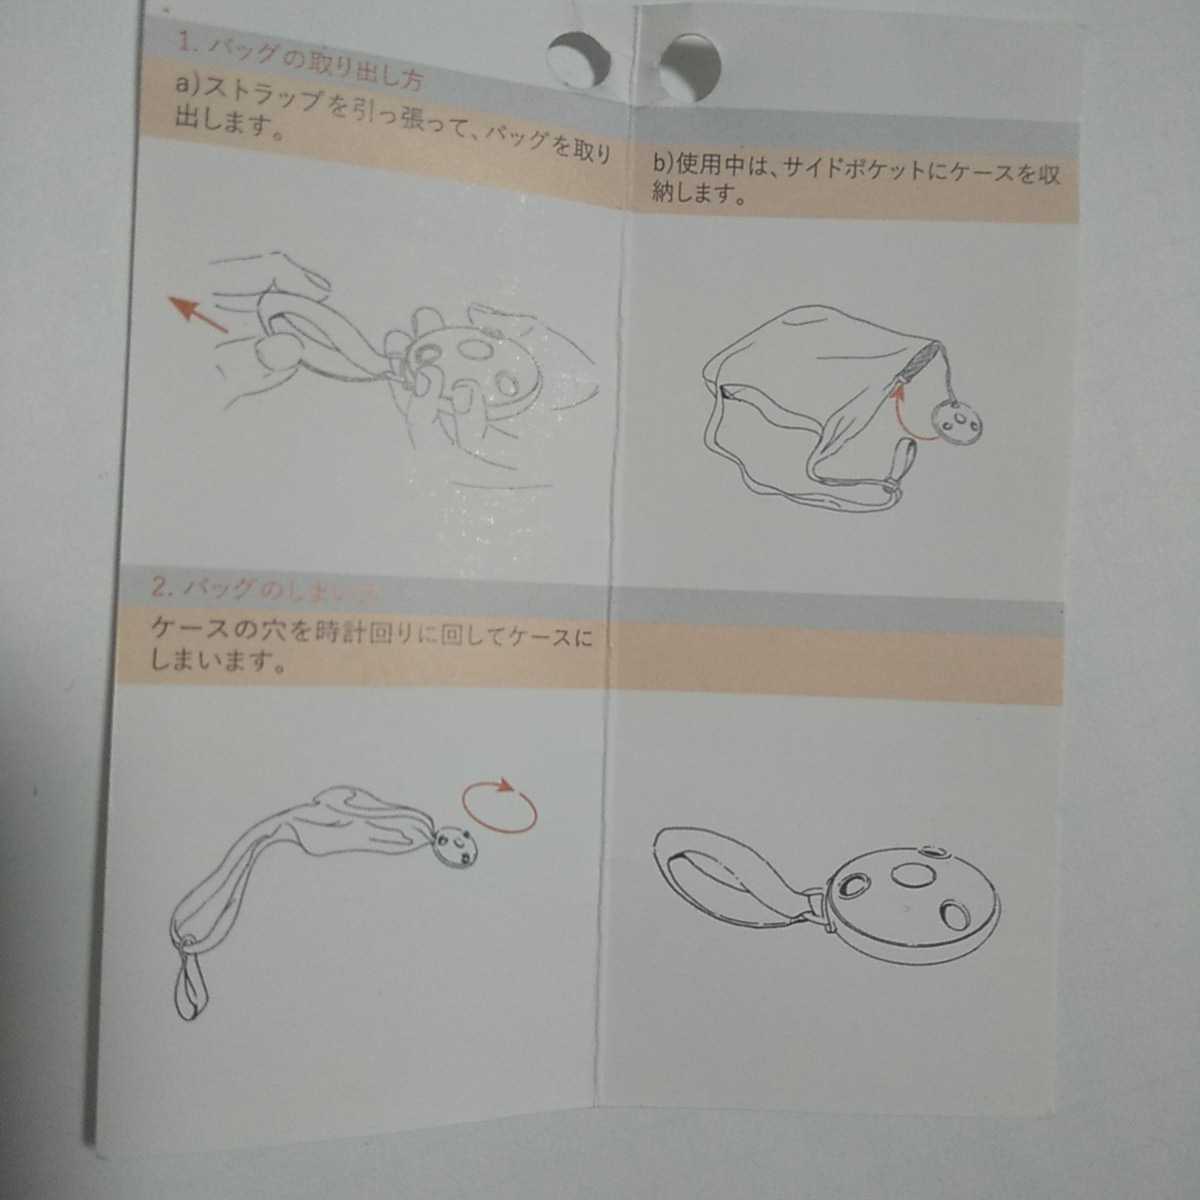 1. バッグの取り出し方
a)ストラップを引っ張って、バッグを取り
出します。
b)使用中は、サイドポケットにケースを収
納します。
2. バッグのしまい方
ケースの穴を時計回りに回してケースに
しまいます。